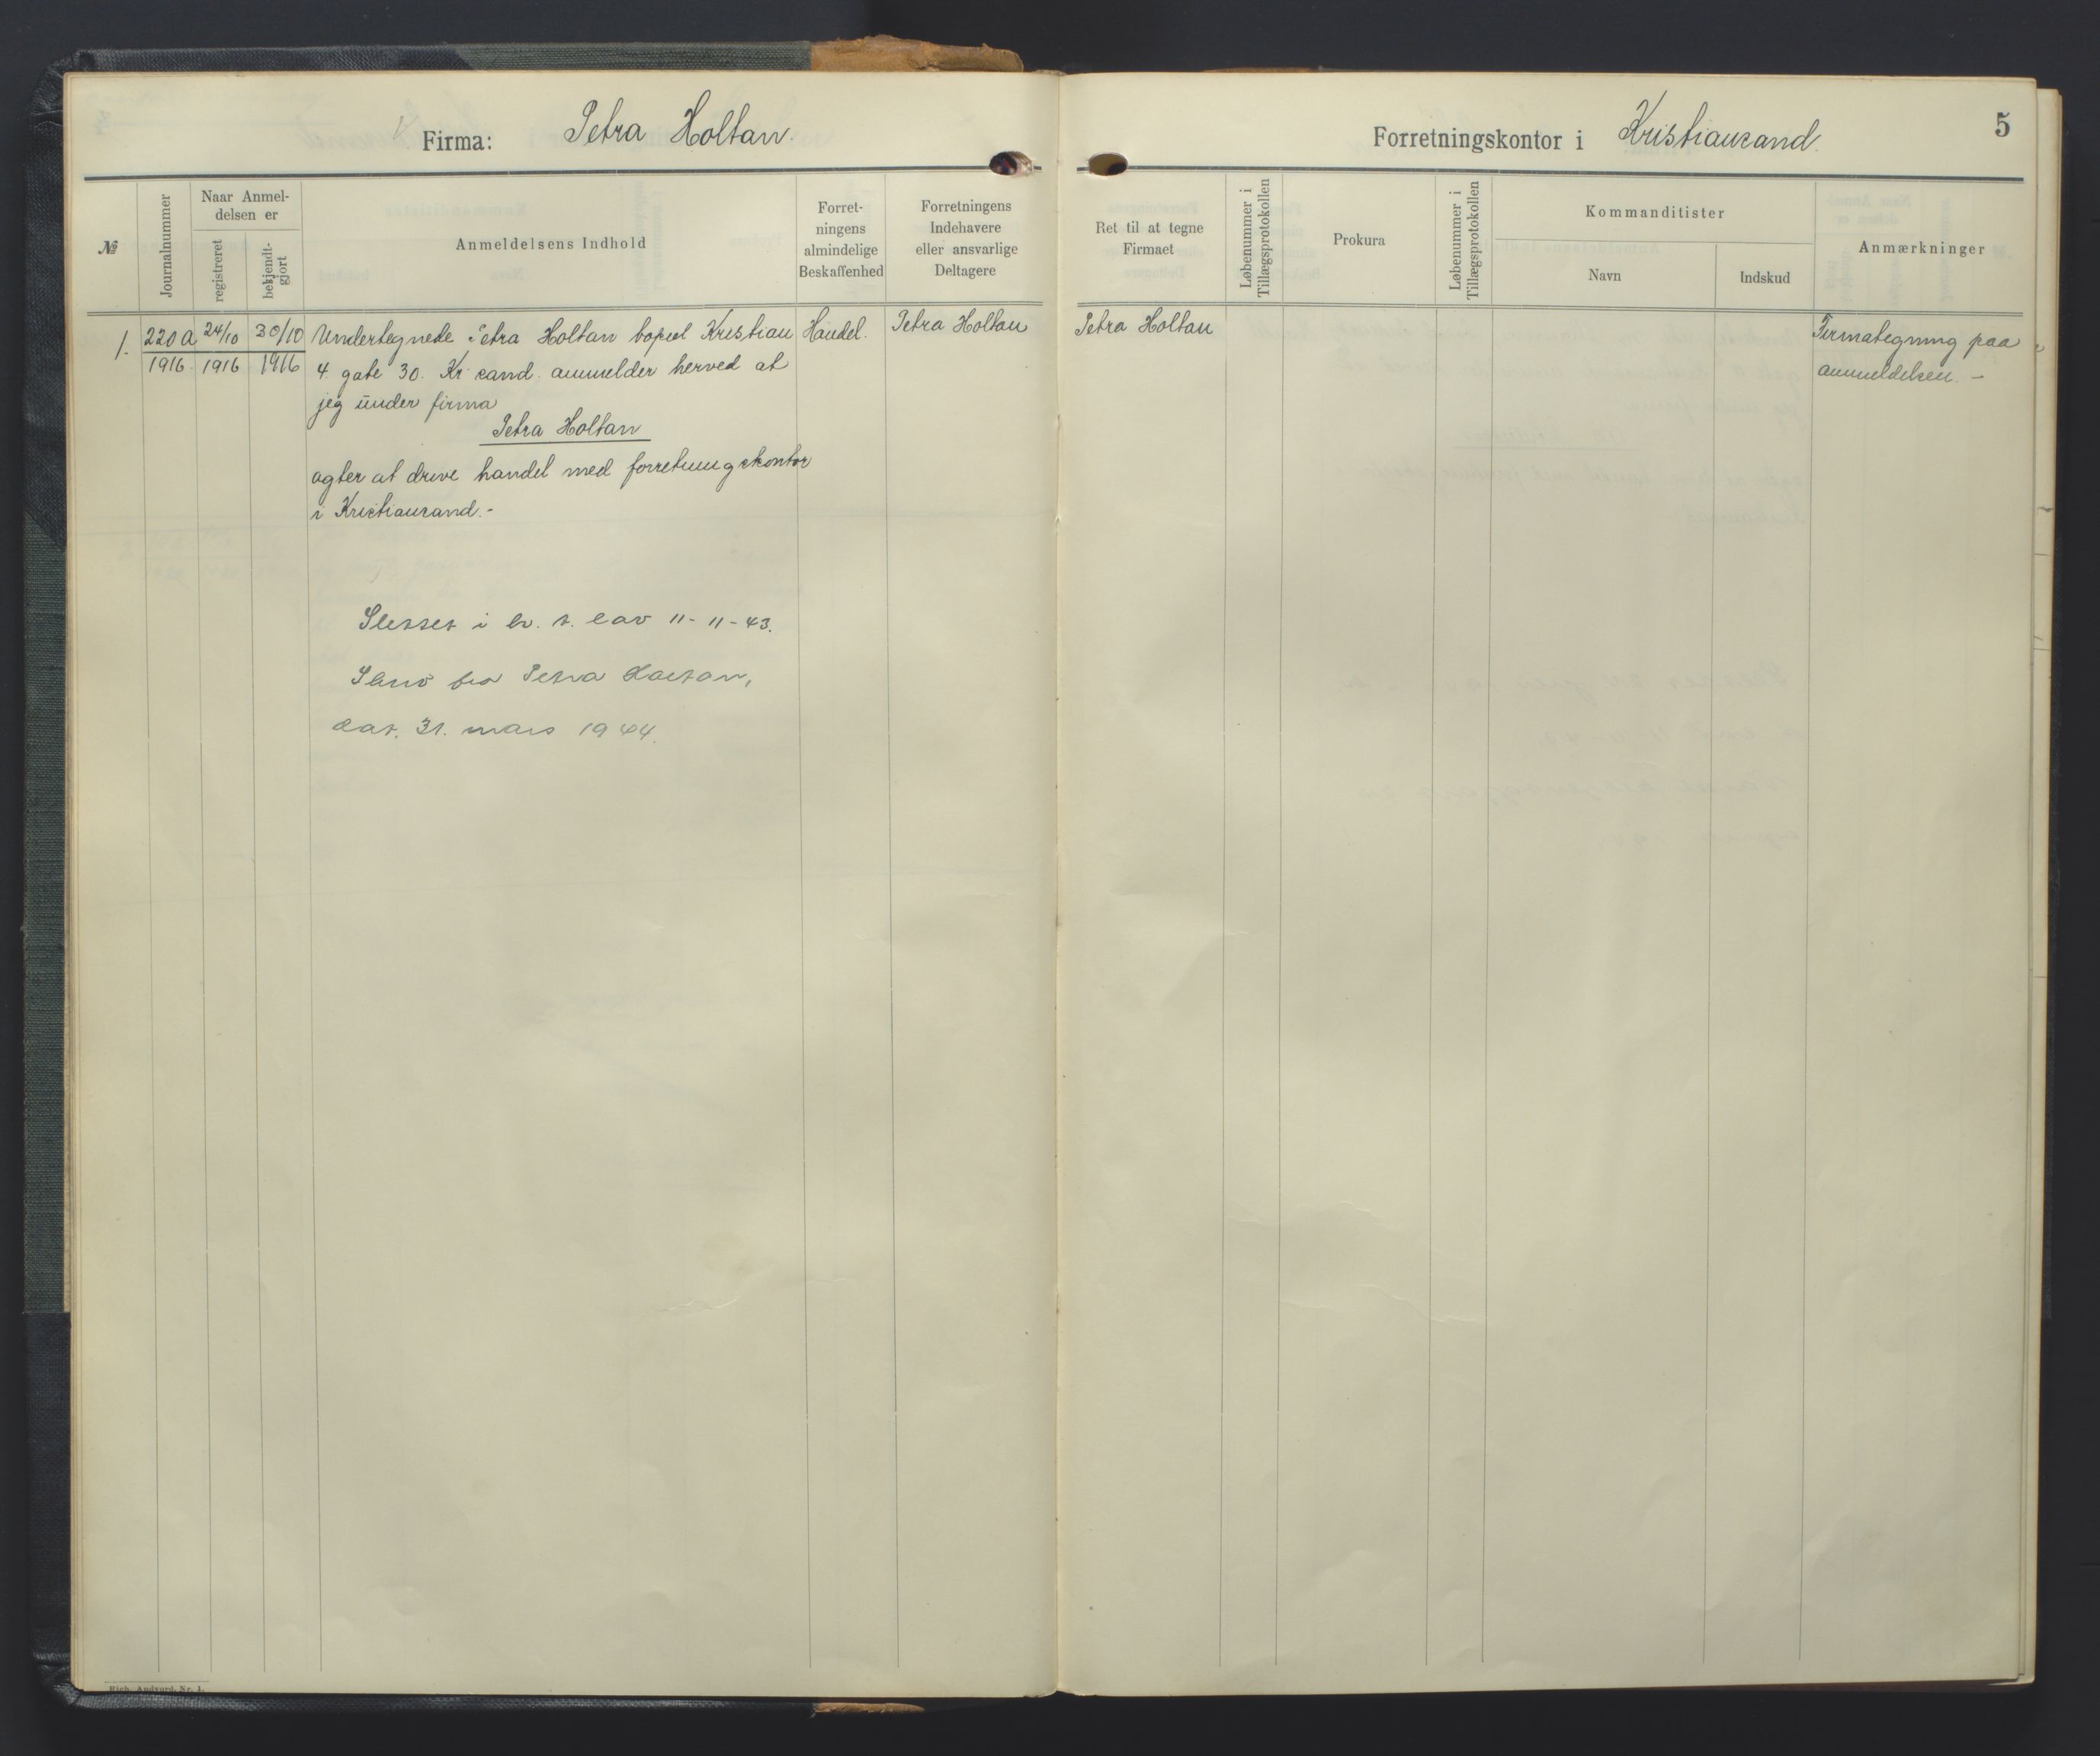 Firma: Petra Holtan.
Forretningskontor i Kristianssand.
5
№
Journalnummer
Naar Anmel-
delsen er
registreret
bekjendt-
gjort
Anmeldelsens Indhold
Forret-
ningens
almindelige
Beskaffenhed
Forretningens
Indehavere
eller ansvarlige
Deltagere
Ret til at tegne
Firmaet
Løbenummer i
Tillægsprotokollen
Prokura
Løbenummer i
Tillægsprotokollen
Kommanditister
Navn
Indskud
Anmærkninger
1.
220a
1916
24/10
1916
30/10
1916
Undertegnede Petra Holtan bopæl Kristian
4 gate 30. Kr sand anmelder herved at
jeg under firma
Petra Holtan
agter at drive handel med forretningskontor
i Kristianssand.-
Handel.
Petra Holtan
Petra Holtan
Firmategning paa
anmeldelsen. -
Slettet i h. t. lov 11-11-43.
Skriv fra Petra Holtan,
dat. 31. mars 1944.
Rich. Andvord. Nr. 1.